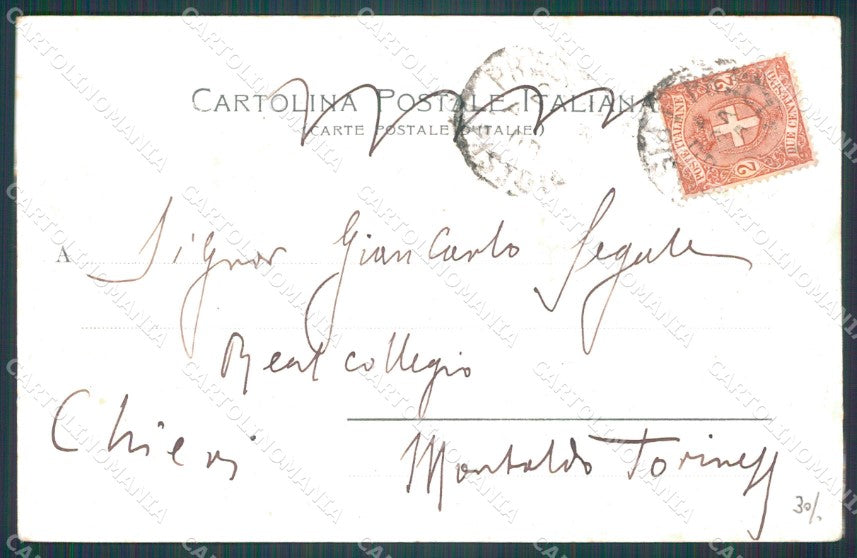 CARTOLINA POSTALE ITALIANA
(CARTE POSTALE D'ITALIE)
POSTE ITALIANE
2
2
DUE CENTESIMI
A Signor Gian Carlo Segala
Real Collegio
Chieri Montaldo Torinese
30/.
CARTOLINOMANIA